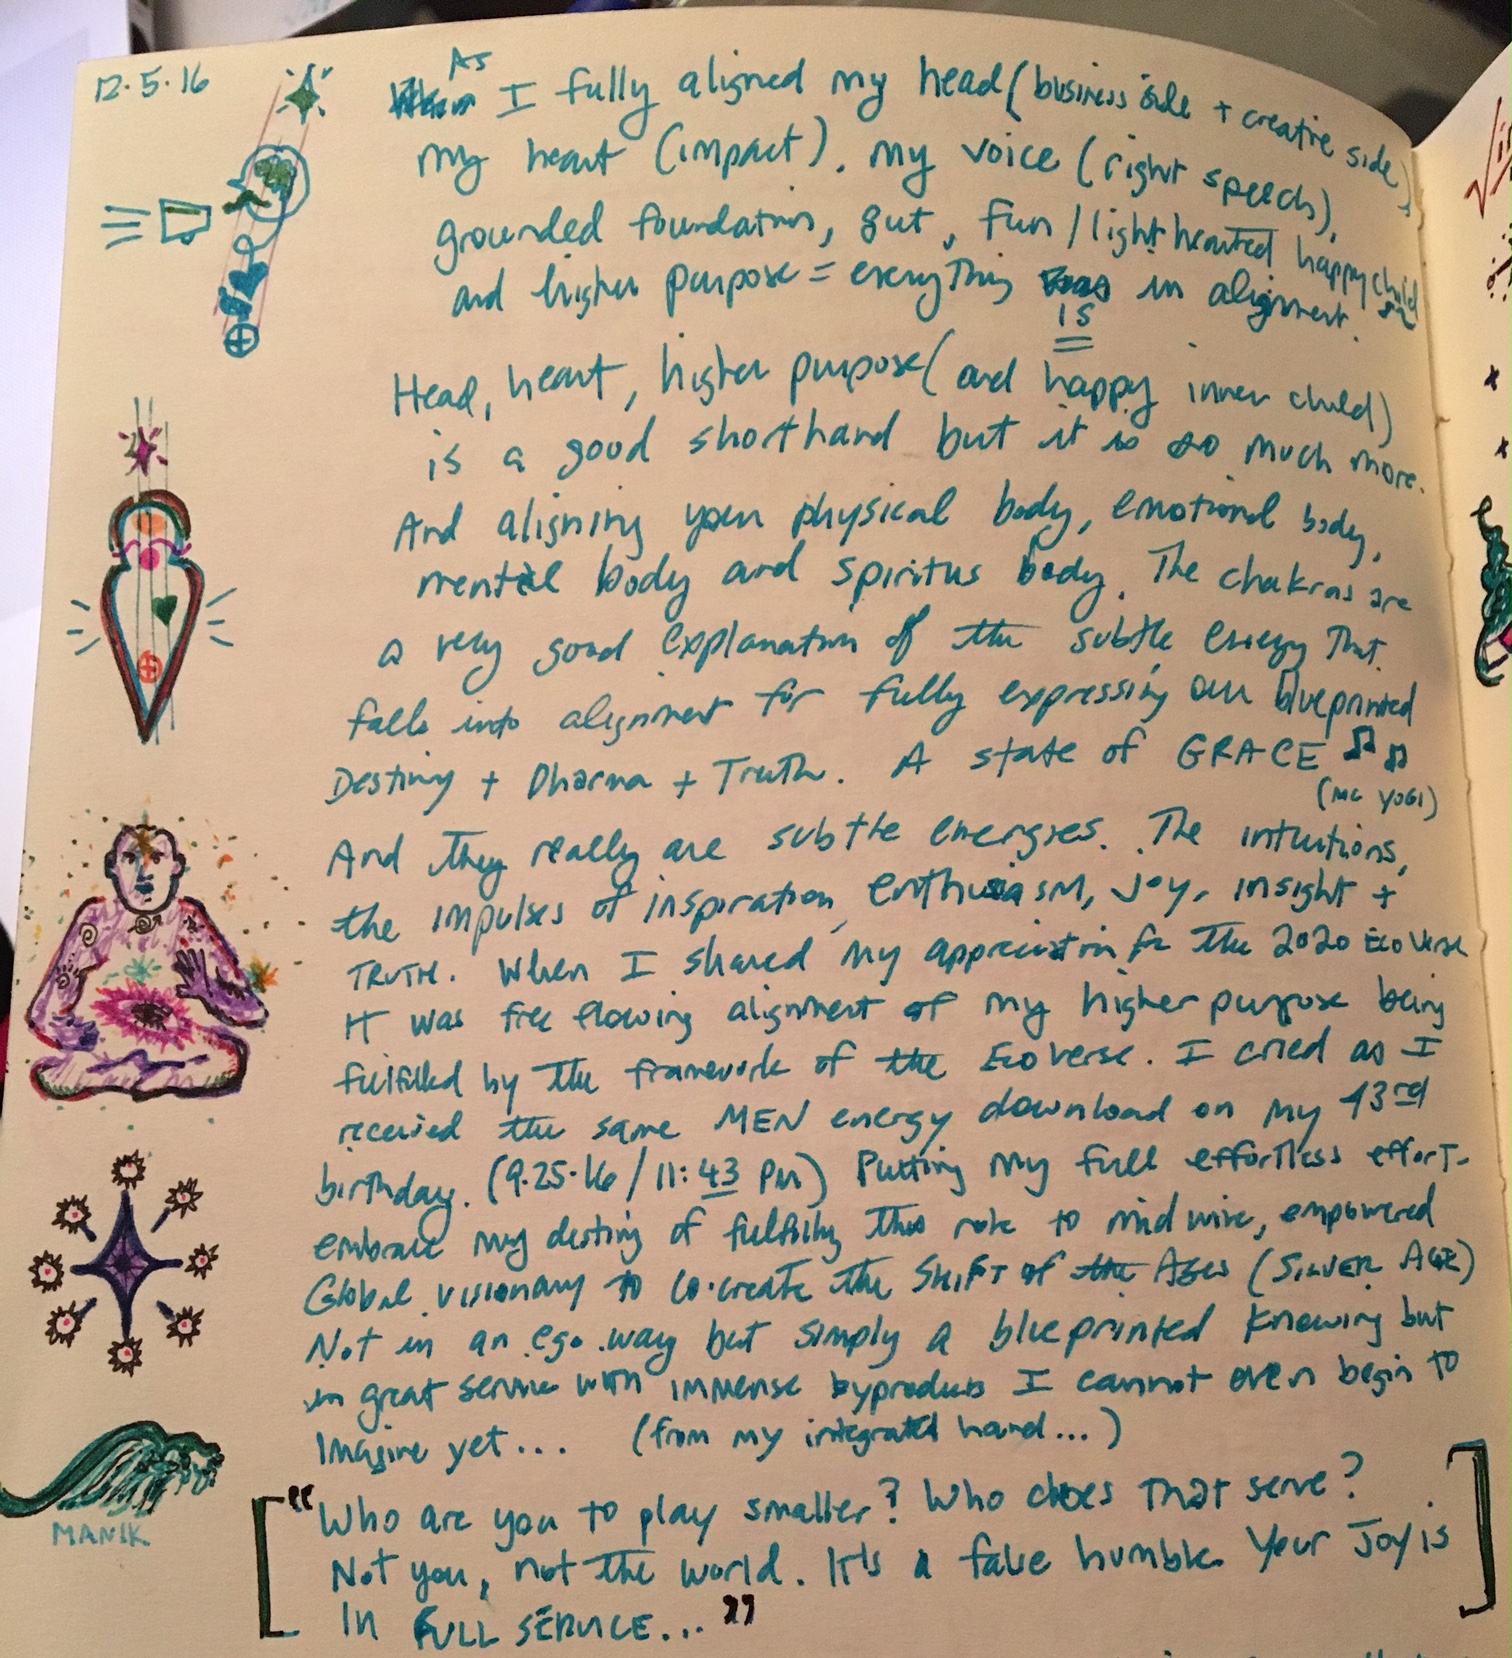 12.5.16
As
I fully aligned my head (business side + creative side),
my heart (impact), my voice (right speech),
grounded foundation, gut, fun/lighthearted happy child
and higher purpose = everything in alignment.
is
Head, heart, higher purpose (and happy inner child)
is a good shorthand but it is so much more.
And aligning your physical body, emotional body,
mental body and spiritus body. The chakras are
a very good explanation of the subtle energy that
falls into alignment for fully expressing our blueprinted
Destiny + Dharma + Truth. A state of GRACE
(MC YOGI)
And they really are subtle energies. The intuitions,
the impulses of inspiration, enthusiasm, joy, insight +
TRUTH. When I shared my appreciation for the 2020 EcoVerse
it was free flowing alignment of my higher purpose being
fulfilled by the framework of the EcoVerse. I cried as I
received the same MEN energy download on my 43rd
birthday. (9.25.16 / 11:43 PM) Putting my full effortless effort-
embrace my destiny of fulfilling this role to midwive, empowered
Global visionary to co-create the Shift of the Ages (SILVER AGE)
Not in an ego way but simply a blueprinted knowing but
in great service with immense byproducts I cannot even begin to
imagine yet... (from my integrated hand...)
"Who are you to play smaller? Who does that serve?
MANIK
Not you, not the world. It's a false humble. Your Joy is
in FULL SERVICE..."